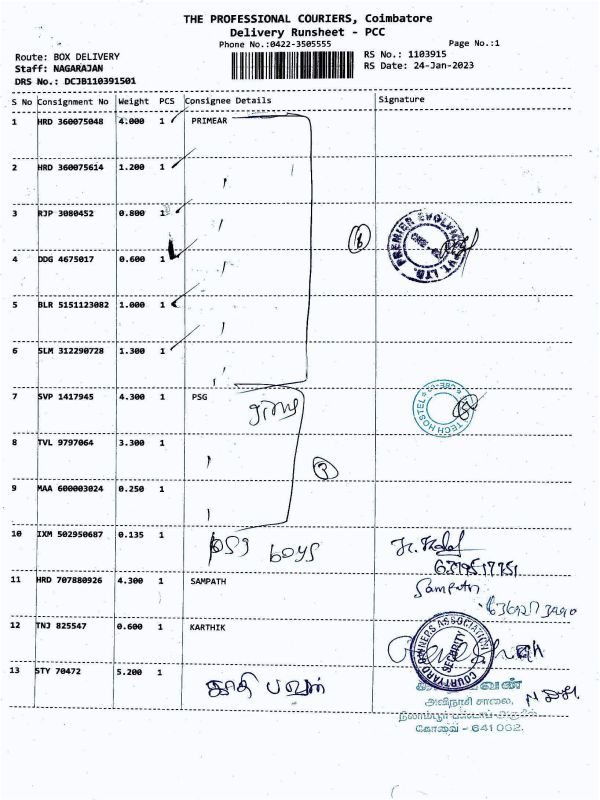 THE PROFESSIONAL COURIERS, Coimbatore
Delivery Runsheet - PCC
Phone No.:0422-3505555
Page No.:1
Route: BOX DELIVERY
RS No.: 1103915
Staff: NAGARAJAN
RS Date: 24-Jan-2023
DRS No.: DCJB110391501
S No Consignment No Weight PCS Consignee Details Signature
1 HRD 360075048 4.000 1 PRIMEAR
2 HRD 360075614 1.200 1
3 RJP 3080452 0.800 1
4 DDG 4675017 0.600 1
5 BLR 5151123082 1.000 1
6 SLM 312290728 1.300 1
PREMIER EVOLVICS PVT. LTD.
7 SVP 1417945 4.300 1 PSG
TECH HOSTEL
8 TVL 9797064 3.300 1
9 MAA 600003024 0.250 1
10 IXM 502950687 0.135 1 psg boys
11 HRD 707880926 4.300 1 SAMPATH Sampath
12 TNJ 825547 0.600 1 KARTHIK
COURTYARD OWNERS ASSOCIATION
SECURITY
13 STY 70472 5.200 1
அவிநாசி சாலை,
கோவை - 641 062.